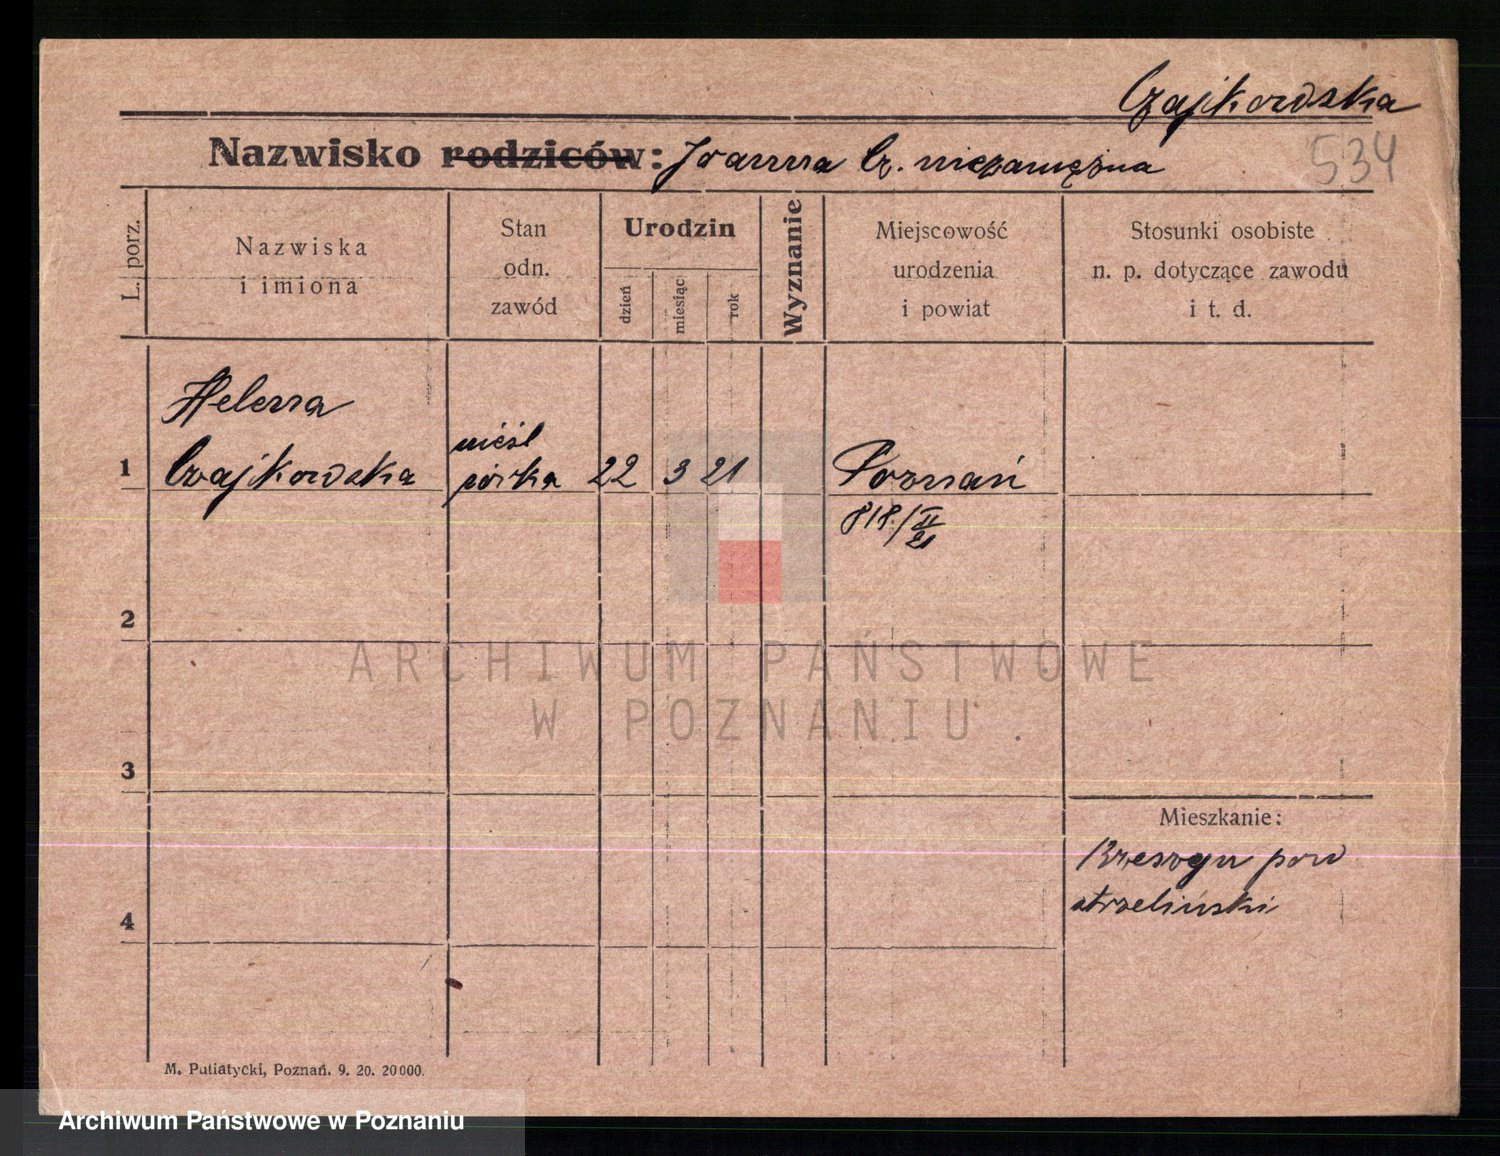 Czajkowska
534
Nazwisko rodziców: Joanna Cz. niezamężna
L. porz.
Nazwiska
i imiona
Stan
odn.
zawód
Urodzin
dzień
miesiąc
rok
Wyznanie
Miejscowość
urodzenia
i powiat
Stosunki osobiste
n. p. dotyczące zawodu
i t. d.
Helena
1 Czajkowska
nieśl
córka 22 3 21 Poznań
818/II
21
2
ARCHIWUM PAŃSTWOWE
W POZNANIU
3
Mieszkanie:
pow
strzeliński
4
M. Putiatycki, Poznań. 9. 20. 20000.
Archiwum Państwowe w Poznaniu